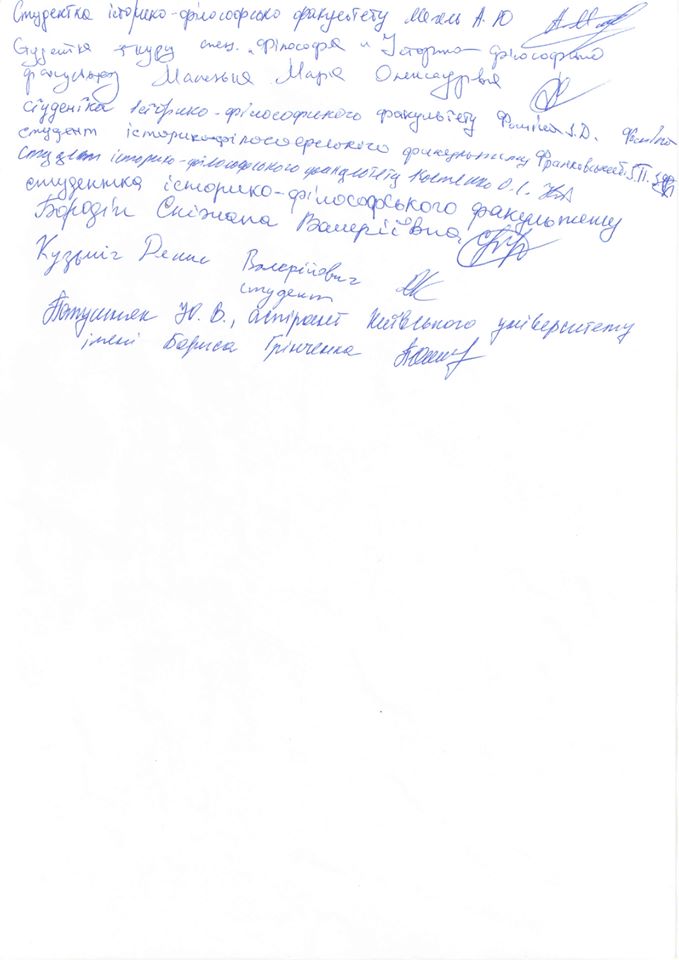 Студентка історико-філософсько факультету Мегель А. Ю
Студентка курсу спец. "Філософія" Історико-філософського
факультету Маленька Марія Олександрівна
студентка Історико-філософського факультету Фоміна Д.
студент історико-філософського факультету Франковський
студент історико-філософського факультету Костенко О. І.
студентка історико-філософського факультету
Бородін Сніжана Валеріївна
Кузьміч Денис Валерійович
студент
Ю. В., аспірант Київського університету
імені Бориса Грінченка